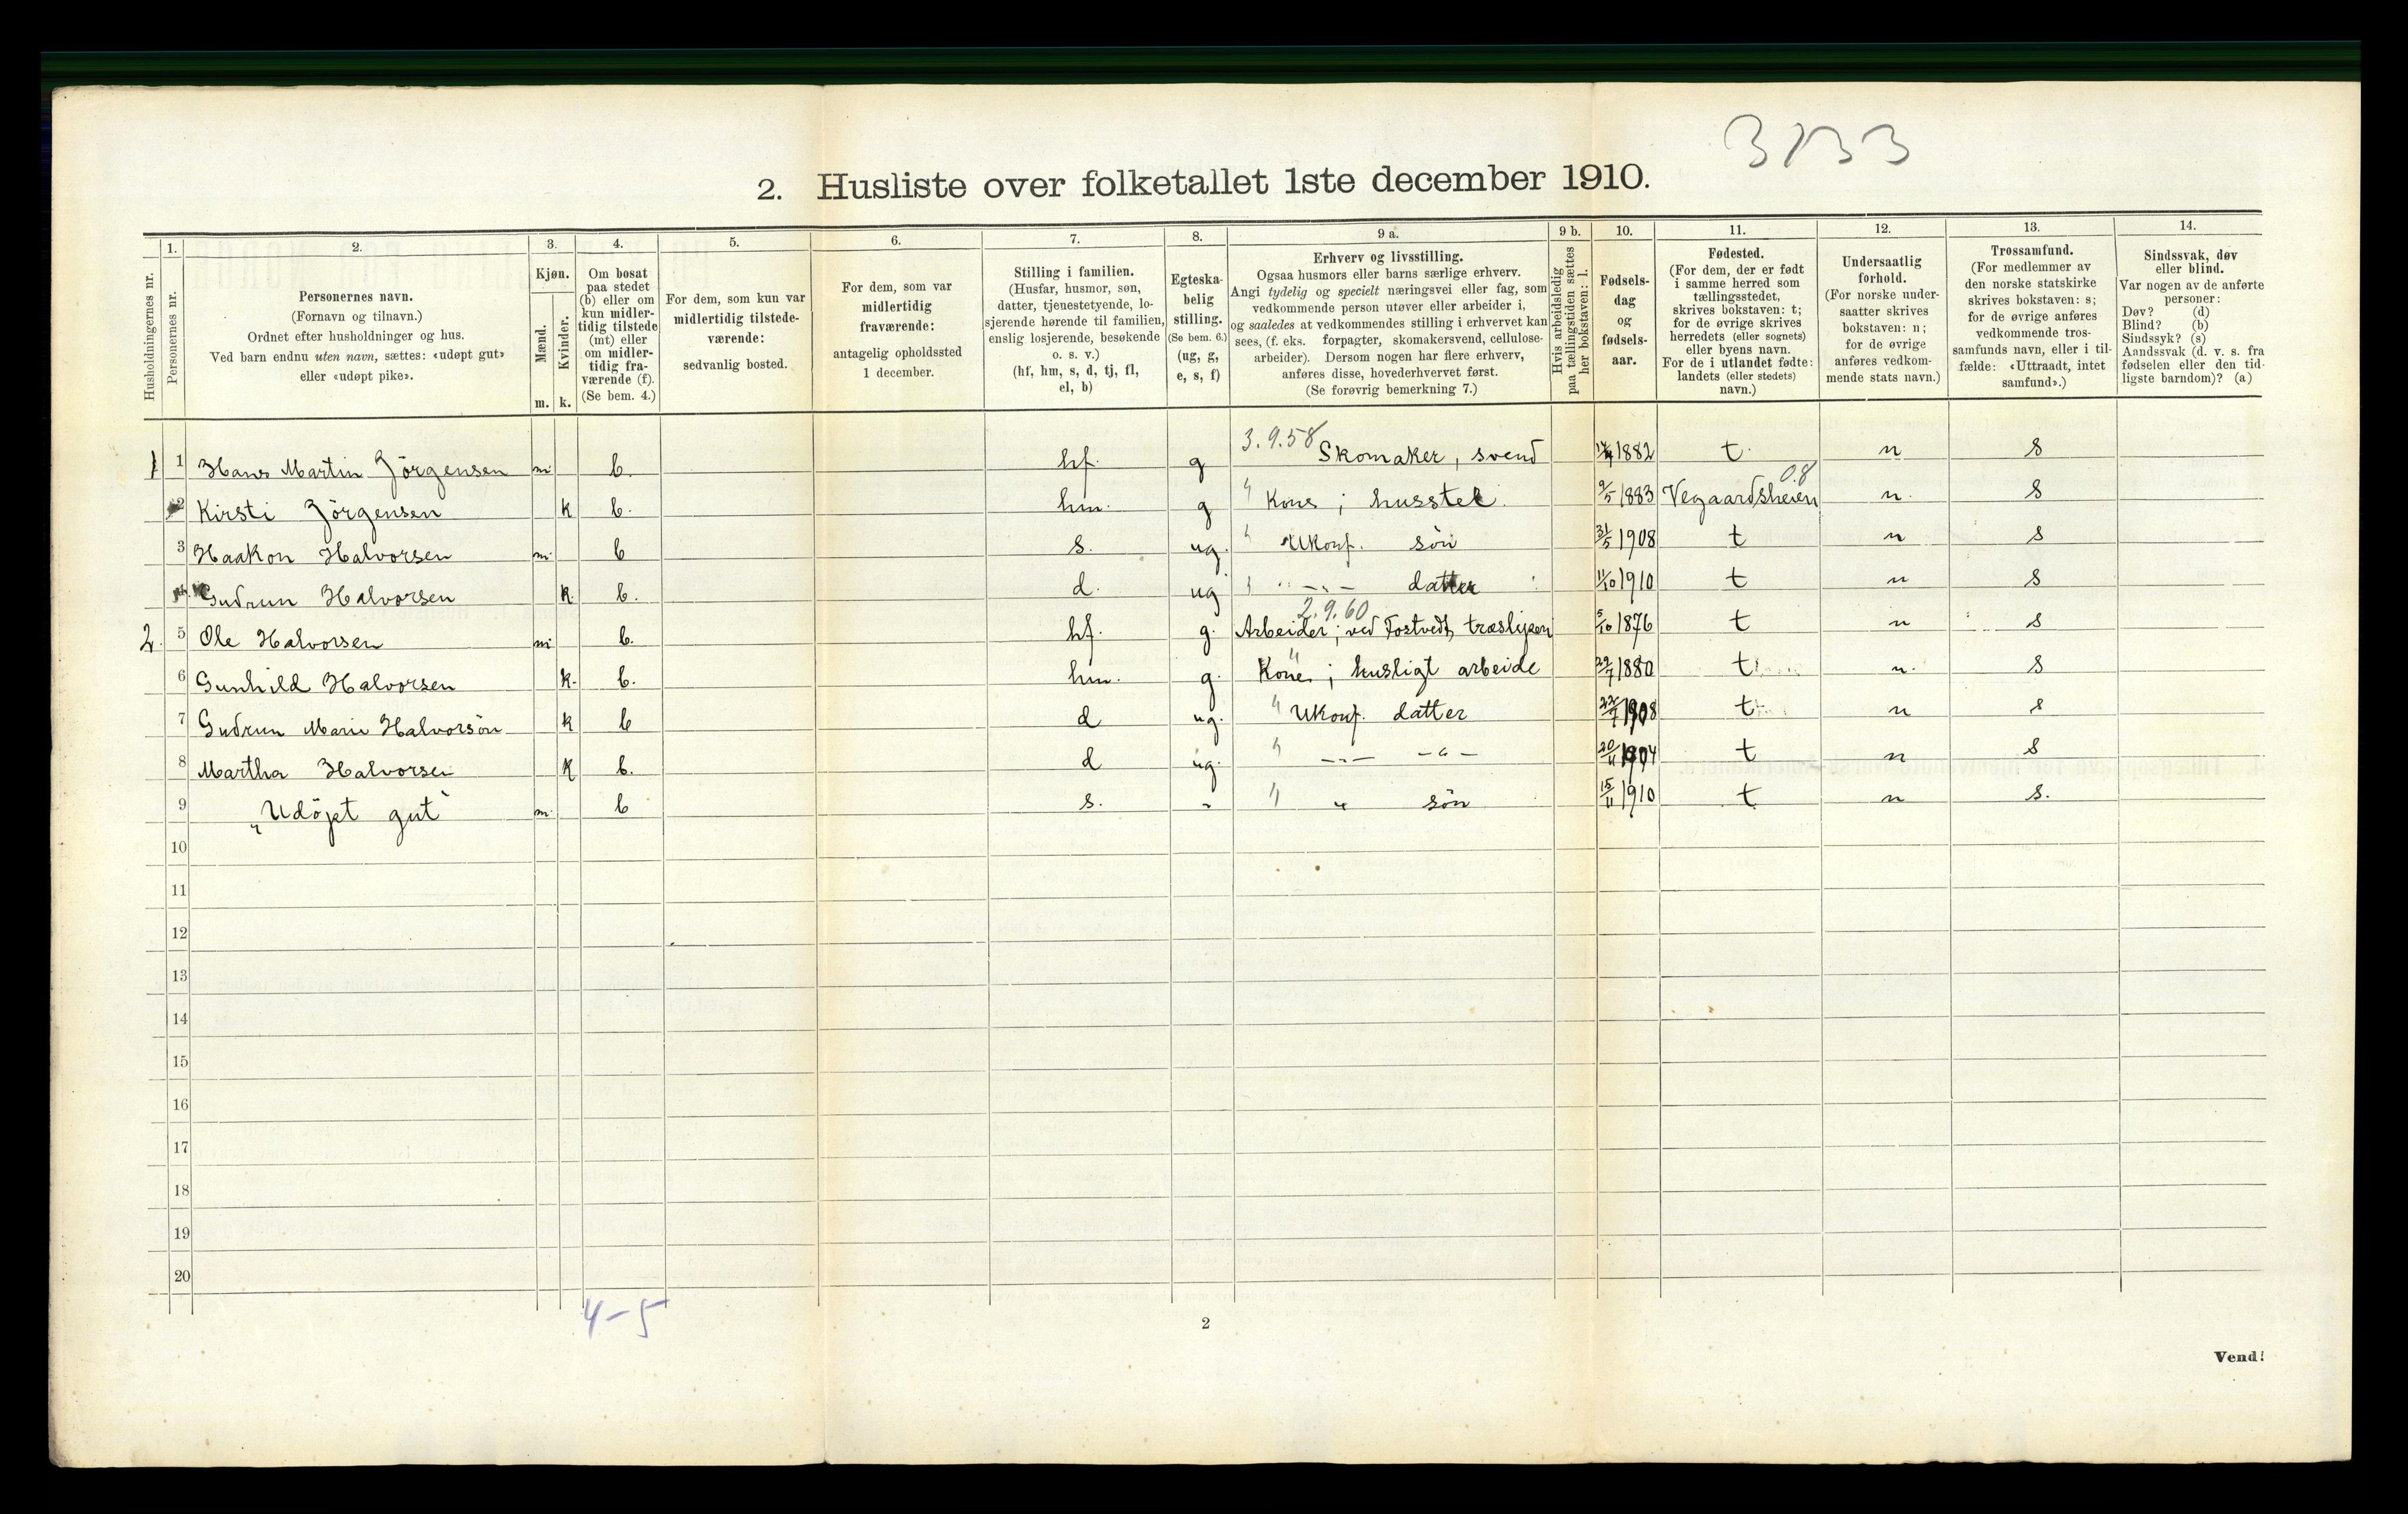 3133
2. Husliste over folketallet 1ste december 1910.
Husholdningernes nr.
1.
Personernes nr.
2.
Personernes navn.
(Fornavn og tilnavn.)
Ordnet efter husholdninger og hus.
Ved barn endnu uten navn, sættes: «udøpt gut»
eller «udøpt pike».
3.
Kjøn.
Mænd.
Kvinder.
m. k.
4.
Om bosat
paa stedet
(b) eller om
kun midler-
tidig tilstede
(mt) eller
om midler-
tidig fra-
værende (f).
(Se bem. 4.)
5.
For dem, som kun var
midlertidig tilstede-
værende:
sedvanlig bosted.
6.
For dem, som var
midlertidig
fraværende:
antagelig opholdssted
1 december.
7.
Stilling i familien.
(Husfar, husmor, søn,
datter, tjenestetyende, lo-
sjerende hørende til familien,
enslig losjerende, besøkende
o. s. v.)
(hf, hm, s, d, tj, fl,
el, b)
8.
Egteska-
belig
stilling.
(Se bem. 6.)
(ug, g,
e, s, f)
9 a.
Erhverv og livsstilling.
Ogsaa husmors eller barns særlige erhverv.
Angi tydelig og specielt næringsvei eller fag, som
vedkommende person utøver eller arbeider i,
og saaledes at vedkommendes stilling i erhvervet kan
sees, (f. eks. forpagter, skomakersvend, cellulose-
arbeider). Dersom nogen har flere erhverv,
anføres disse, hovederhvervet først.
(Se forøvrig bemerkning 7.)
9 b.
Hvis arbeidsledig
paa tællingstiden sættes
her bokstaven: l.
10.
Fødsels-
dag
og
fødsels-
aar.
11.
Fødested.
(For dem, der er født
i samme herred som
tællingsstedet,
skrives bokstaven: t;
for de øvrige skrives
herredets (eller sognets)
eller byens navn.
For de i utlandet fødte:
landets (eller stedets)
navn.)
12.
Undersaatlig
forhold.
(For norske under-
saatter skrives
bokstaven: n;
for de øvrige
anføres vedkom-
mende stats navn.)
13.
Trossamfund.
(For medlemmer av
den norske statskirke
skrives bokstaven: s;
for de øvrige anføres
vedkommende tros-
samfunds navn, eller i til-
fælde: «Uttraadt, intet
samfund».)
14.
Sindssvak, døv
eller blind.
Var nogen av de anførte
personer:
Døv? (d)
Blind? (b)
Sindssyk? (s)
Aandssvak (d. v. s. fra
fødselen eller den tid-
ligste barndom)? (a)
1 1 Hans Martin Jörgensen m b. hf. g 3.9.58 Skomaker, svend 1882 t. n s
2 Kirsti Jörgensen k b. hm. g " Kone ; husstel. 9/5 1883 Vegaardsheien 08 n. s
3 Haakon Halvorsen m b s. ug. " Ukonf. sön 31/5 1908 t n s
4 Gudrun Halvorsen k. b. d. ug " -"- datter 11/10 1910 t n s
2. 5 Ole Halvorsen m b. hf. g. 2.9.60 Arbeider; ved Fostvedt træsliperi 5/10 1876 t n s
6 Gunhild Halvorsen k. b. hm. g. " Kone ; husligt arbeide 29/7 1880 t n. s
7 Gudrun Marie Halvorsön k b d ug. " Ukonf. datter 22/7 1908 t n s
8 Martha Halvorsen k b. d ug. " -"- -"- 20/11 1904 t n s
9 „Udöpt gut" m b s. " " " sön 15/11 1910 t n s.
10
11
12
13
14
15
16
17
18
19
20
4-5
2
Vend!